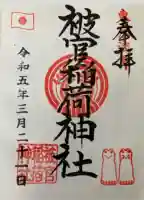 奉拝
被官稲荷神社
令和五年三月二十一日